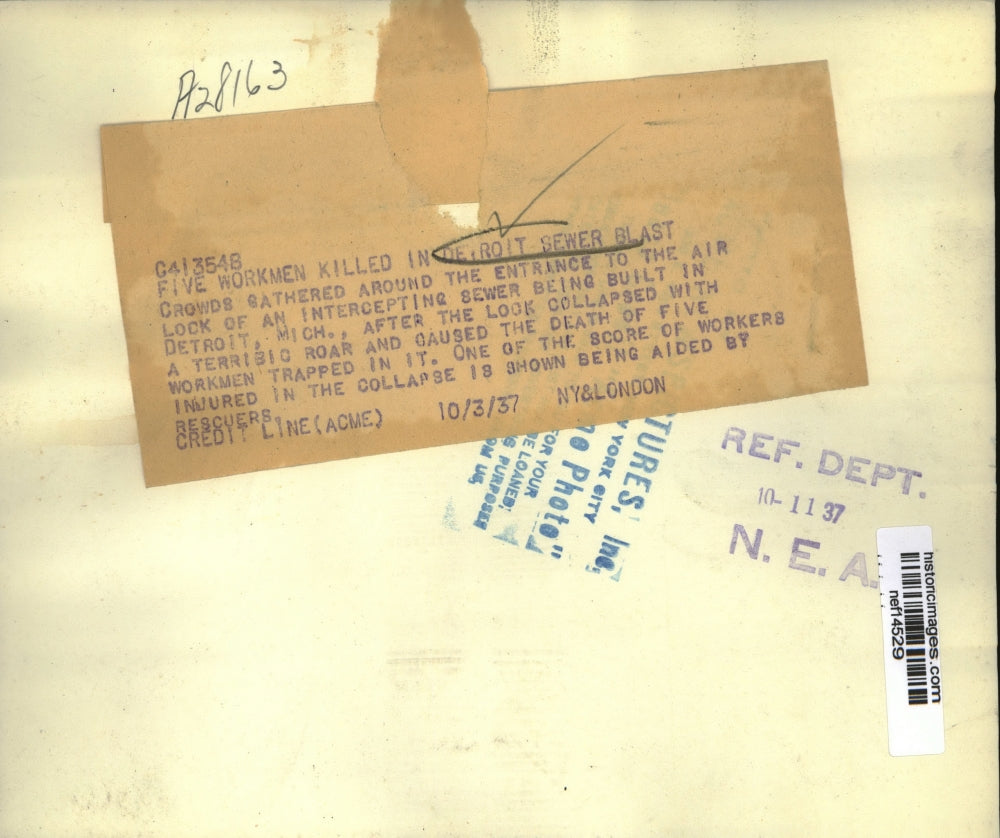 A28163
G413548
FIVE WORKMEN KILLED IN DETROIT SEWER BLAST
CROWDS GATHERED AROUND THE ENTRANCE TO THE AIR
LOCK OF AN INTERCEPTING SEWER BEING BUILT IN
DETROIT, MICH., AFTER THE LOCK COLLAPSED WITH
A TERRIBIC ROAR AND CAUSED THE DEATH OF FIVE
WORKMEN TRAPPED IN IT. ONE OF THE SCORE OF WORKERS
INJURED IN THE COLLAPSE IS SHOWN BEING AIDED BY
RESCUERS.
CREDIT LINE(ACME) 10/3/37 NY&LONDON
TURES, Inc,
YORK CITY
Photo"
FOR YOUR
LOANED,
PURPOSES
US,
REF. DEPT.
10-11 37
N. E. A.
historicimages.com
nef14529